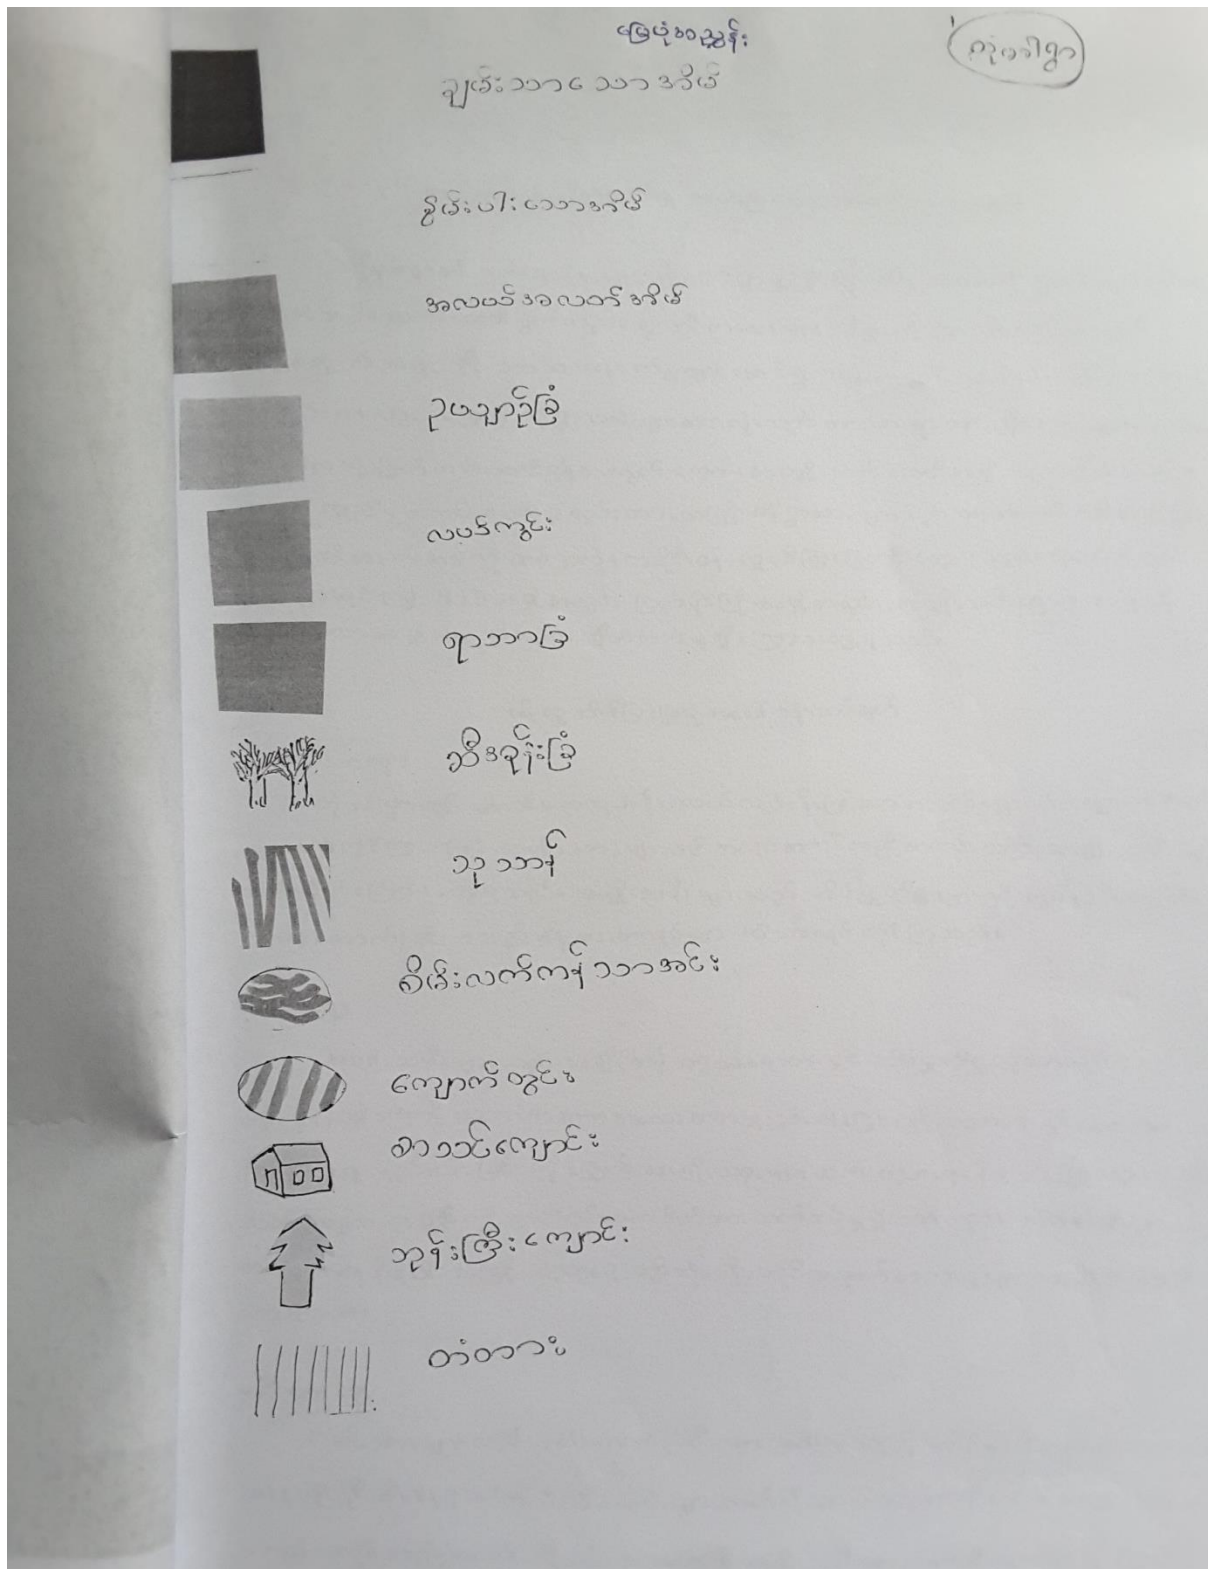 မြေပုံအညွှန်း
ချမ်းသာသောအိမ်
နွမ်းပါးသောအိမ်
အလယ်အလတ်အိမ်
ဥယျာဉ်ခြံ
လယ်ကွင်း
ရာဘာခြံ
ဆီအုန်းခြံ
သုသာန်
စိမ်းလက်ကန်သာအင်း
ကျောက်တွင်း
စာသင်ကျောင်း
ဘုန်းကြီးကျောင်း
တံတား